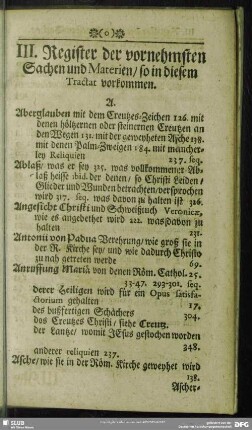 III. Register der vornehmsten
Sachen und Materien/ so in diesem
Tractat vorkommen.
A.
Aberglauben mit dem Creutzes-Zeichen 126. mit
denen höltzernen oder steinernen Creutzen an
den Wegen 131. mit der geweyheten Asche 138.
mit denen Palm-Zweigen 184. mit mancher-
ley Reliquien 237. seq.
Ablaß/ was er sey 315. was vollkommener Ab-
laß heisse ibid. der denen/ so Christi Leiden/
Glieder und Wunden betrachten/ versprochen
wird 317. seq. was davon zu halten ist 326.
Angesicht Christi und Schweißtuch Veronicæ,
wie es angebethet wird 222. was davon zu
halten 231.
Antonii von Padua Verehrung/ wie groß sie in
der R. Kirche sey/ und wie dadurch Christo
zu nah getreten werde 69.
Anruffung Mariä von denen Röm. Cathol. 25.
33-47. 293-301. seq.
derer Heiligen wird für ein Opus satisfa-
ctorium gehalten 17.
des bußfertigen Schächers 304.
des Creutzes Christi/ siehe Creutz.
der Lantze/ womit JEsus gestochen worden
348.
anderer reliquien 237.
Asche/ wie sie in der Röm. Kirche geweyhet wird
138.
Ascher-